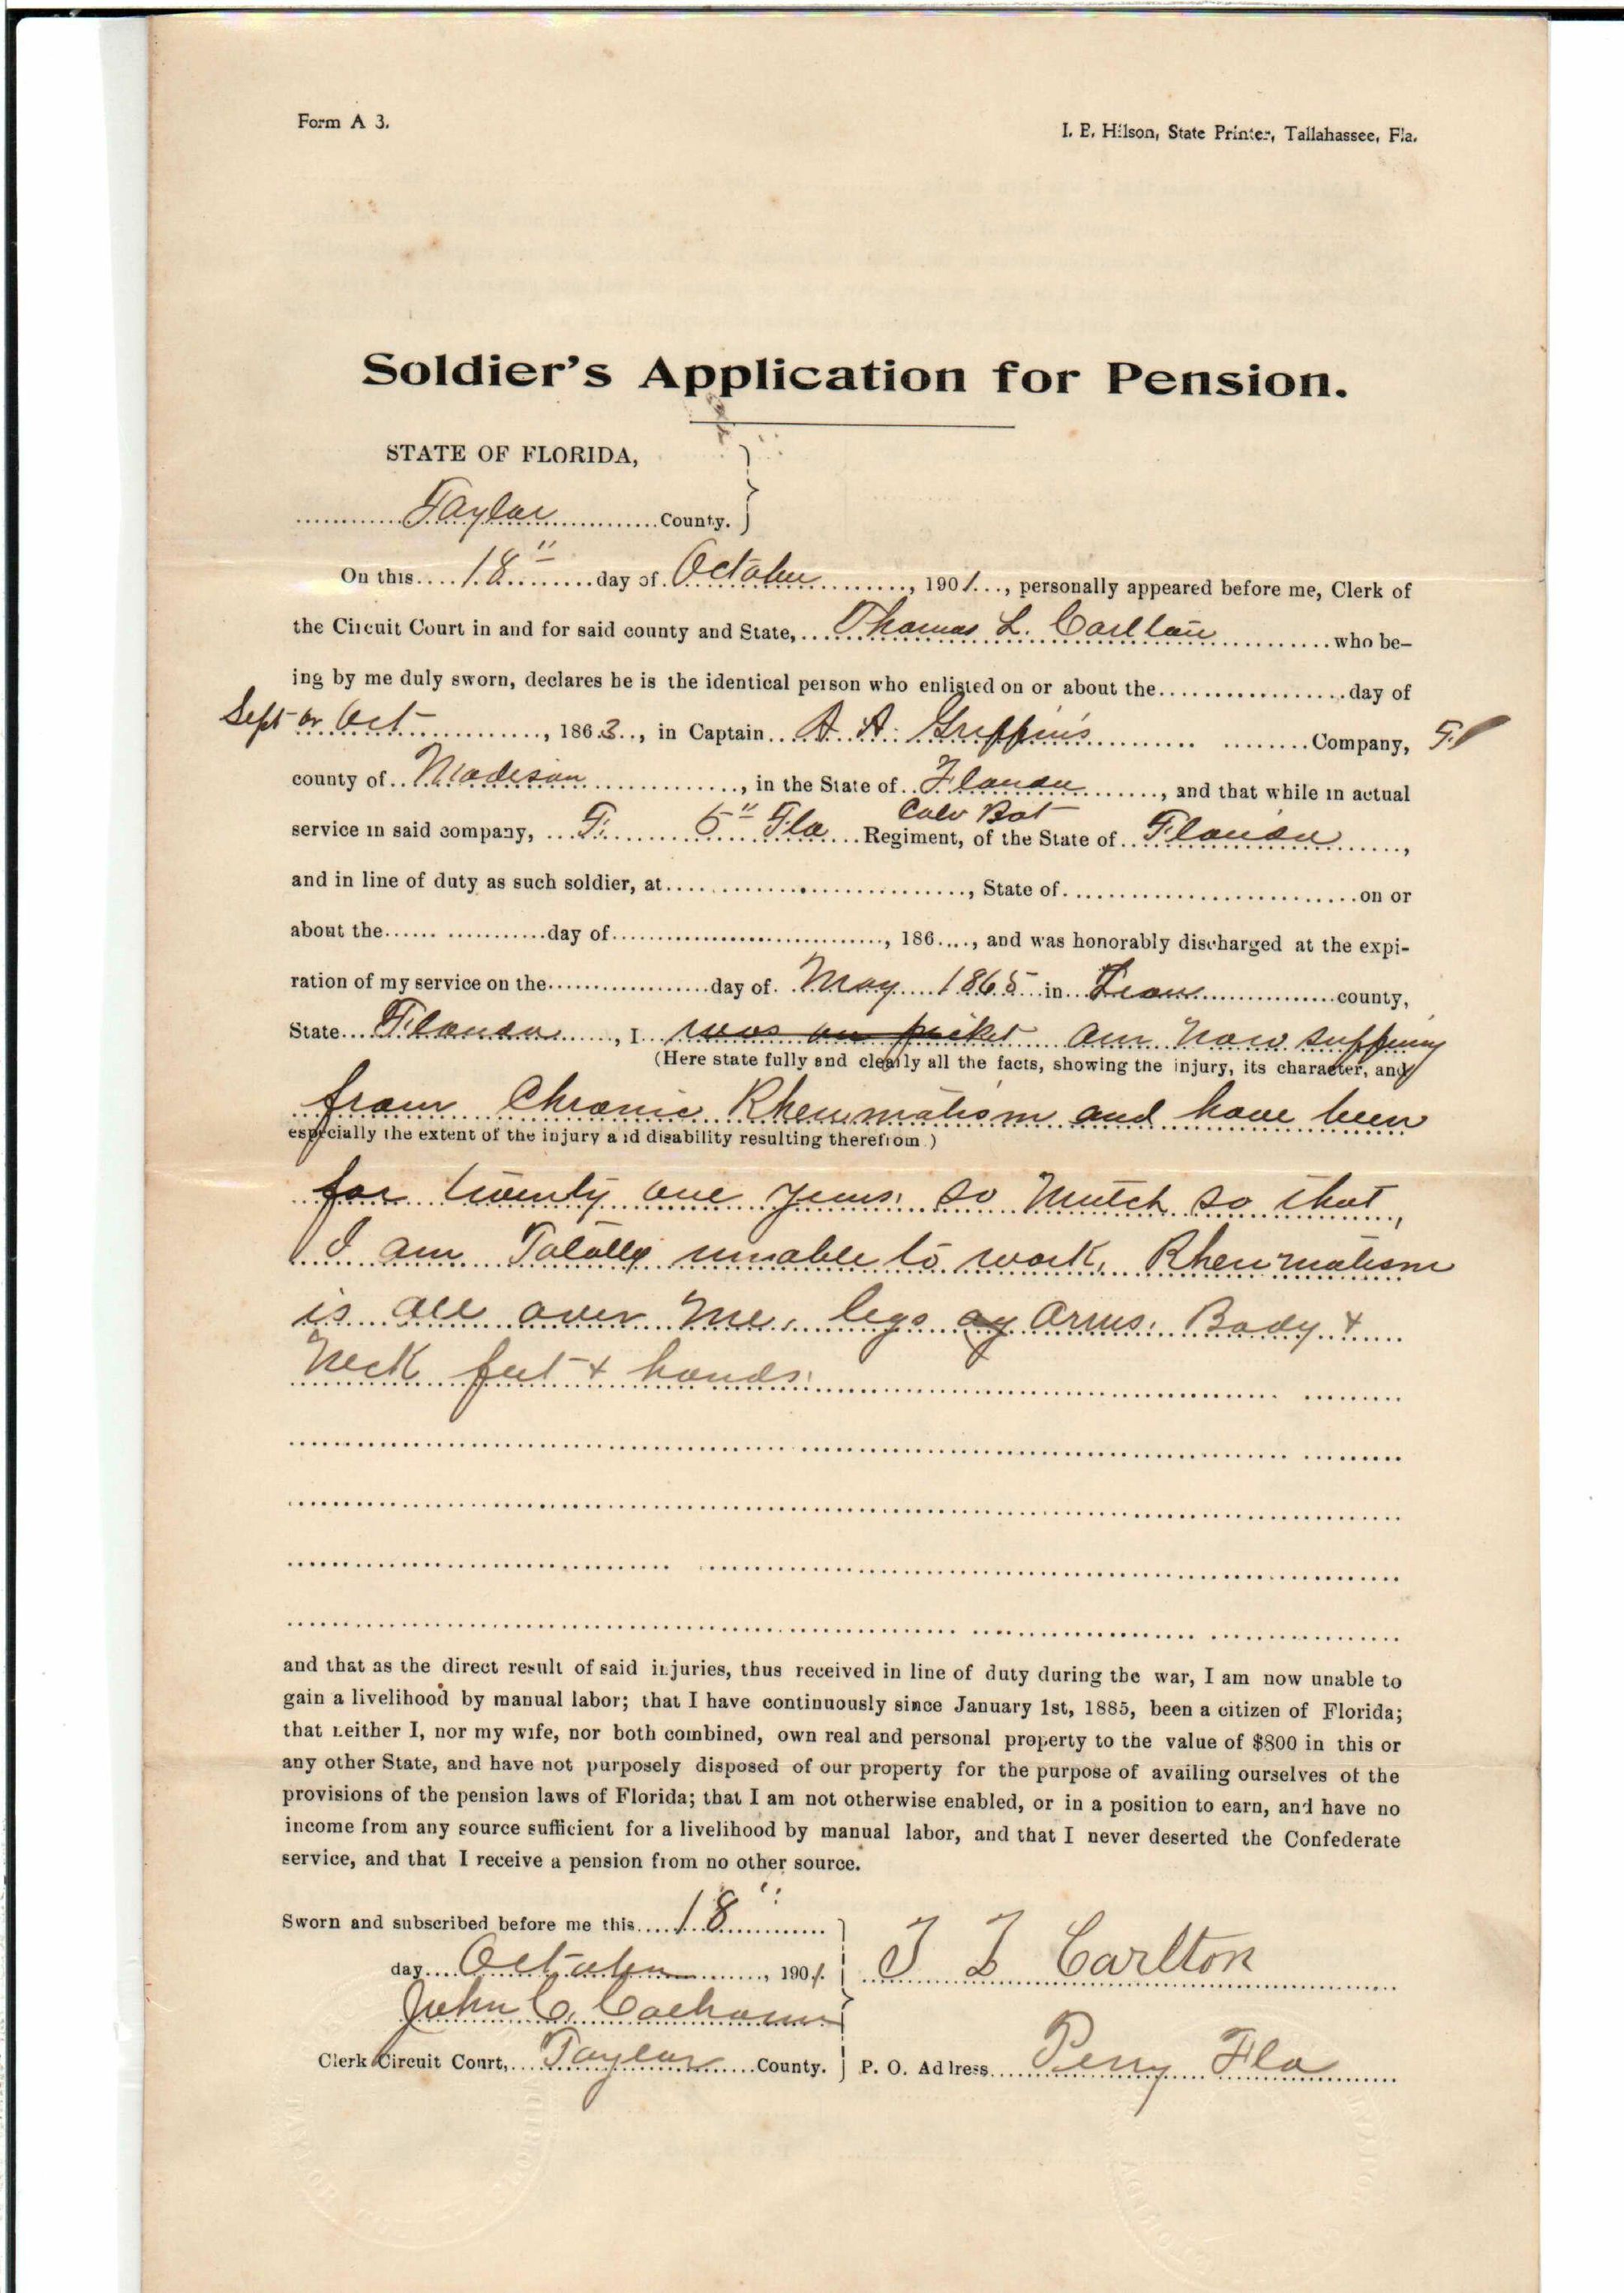 Form A 3.
I. E. Hilson, State Printer, Tallahassee, Fla.
Soldier's Application for Pension.
STATE OF FLORIDA,
Taylor County.
On this 18" day of October, 1901, personally appeared before me, Clerk of
the Circuit Court in and for said county and State, Thomas L. Carlton who be-
ing by me duly sworn, declares he is the identical person who enlisted on or about the day of
Sept or Oct, 1863, in Captain A. A. Griffins Company,
county of Madison, in the State of Florida, and that while in actual
Calv Bat
service in said company, F. 5" Fla Regiment, of the State of Florida,
and in line of duty as such soldier, at, State of on or
about the day of, 186, and was honorably discharged at the expi-
ration of my service on the day of May 1865 in Leon county,
State Florida, I was on picket am now suffering
(Here state fully and clearly all the facts, showing the injury, its character, and
from Chronic Rheumatism and have been
especially the extent of the injury and disability resulting therefrom.)
for twenty one years. so mutch so that,
I am Totally unable to work. Rheumatism
is all over me, legs arms. Body +
Neck feet + hands.
and that as the direct result of said injuries, thus received in line of duty during the war, I am now unable to
gain a livelihood by manual labor; that I have continuously since January 1st, 1885, been a citizen of Florida;
that neither I, nor my wife, nor both combined, own real and personal property to the value of $800 in this or
any other State, and have not purposely disposed of our property for the purpose of availing ourselves of the
provisions of the pension laws of Florida; that I am not otherwise enabled, or in a position to earn, and have no
income from any source sufficient for a livelihood by manual labor, and that I never deserted the Confederate
service, and that I receive a pension from no other source.
Sworn and subscribed before me this 18"
day October, 1901.
T L Carlton
John C. Calhoun
Clerk Circuit Court, Taylor County.
P. O. Address Perry Fla